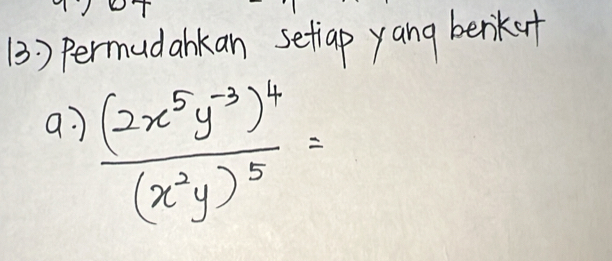 13.) Permudahkan setiap yang berikut
a.) (2x⁵y⁻³)⁴ / (x²y)⁵ =